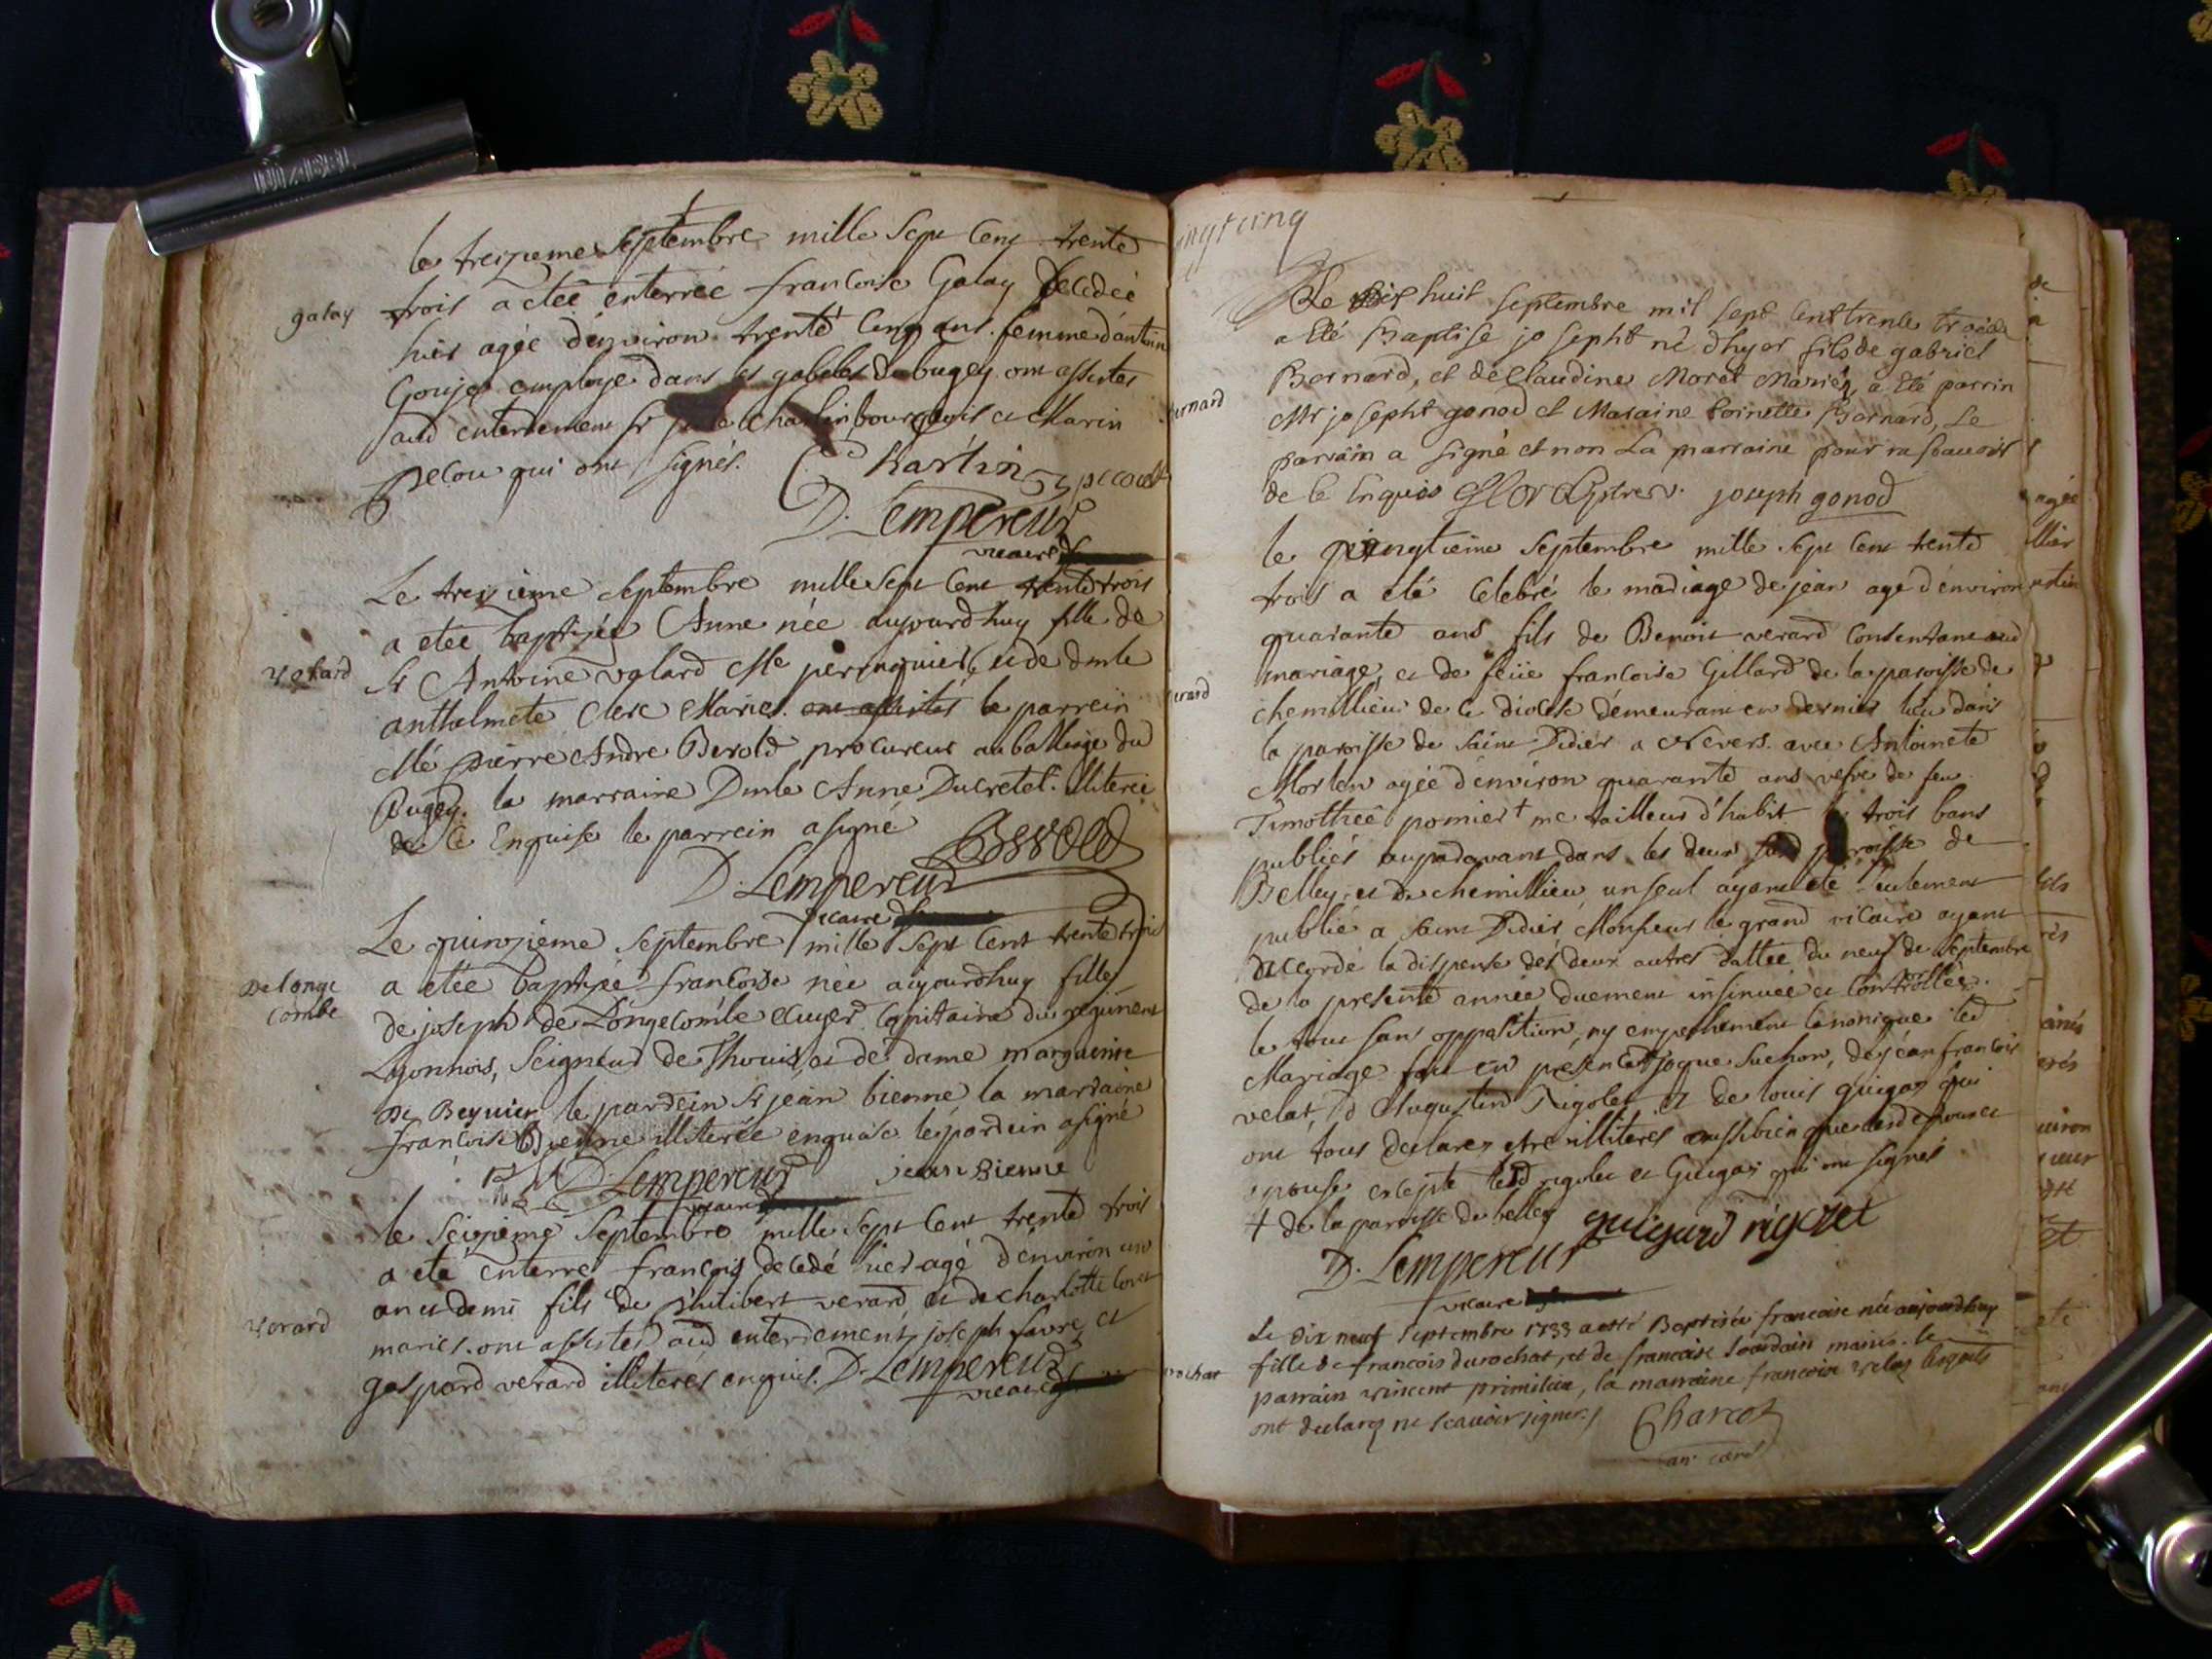 le treizieme Septembre mille Sept Cent trente
galay
trois a etée enterrée francoise Galay Decedée
hier agée d'environ trente Cinq ans. femme d'antoin
Goujet employe dans les gabeles du bugey. ont assistes
aud enterrement Sr Charlin bourgeois et Marin
pecou qui ont signés. Charlin pecoult
D. Lempereur
vicaire
Le treizieme Septembre mille Sept Cent trente trois
a etée baptizée Anne née aujourdhuy fille de
velard
Sr Antoine valard Me peruquier, et de dmle
anthelmete Clerc Maries. ont assistes le parrein
Me pierre Andre Berold procureur au balliage du
Bugey. la marraine Dmle Anne Ducretet. illiterée
de Ce Enquise le parrein a signé
Berold
D. Lempereur
vicaire
Le quinzieme Septembre mille Sept Cent trente trois
De longe
combe
a etée baptizée francoise née aujourdhuy fille
de joseph de Longecombe ecuyer Capitaine du regiment
Lyonnois, Seigneur de Thouis, et de dame marguerite
De Beynier le parrein Sr jean bienne la marraine
francoise Bienne illiterée enquise le parrein a signé
D. Lempereur jean Bienne
vicaire
le Seizieme Septembre mille Sept Cent trente trois
a eté enterré francois decedé hier agé d'environ un
an et demi fils de philibert verard, et de charlotte
verard
maries. ont assistes aud enterrement joseph favre, et
gaspard verard illiterés enquis. D. Lempereur
vicaire
ingtcinq
Le dix huit septembre mil sept cent trente trois
a Eté Baptise josepht né d'hyer fils de gabriel
Bernard, et de Claudine Moret Mariéz, a Eté parrin
ernard
Mr josepht gonod et Maraine Bernard, Le
parrain a signé et non La marraine pour ne scauoir
de ce Enquis joseph gonod
le vingtieme Septembre mille Sept Cent trente
trois a eté Celebré le mariage de jean agé d'environ
quarante ans fils de Benoit verard Consentant aud
mariage, et de feüe francoise Gillard de la paroisse de
erard
chemillieu de Ce diocese demeurant en dernier lieu dans
la paroisse de Saint Didier a Nevers. avec Antoinete
agée d'environ quarante ans vefve de feu
Timothée pomier + me tailleur d'habit trois bans
publiés auparavant dans les deux paroisse de
Belley, et de chemillieu, un seul ayant eté Seulement
publié a Saint Didier Monsieur le grand vicaire ayant
accordé la dispense des deux autres dattée du neuf de Septembre
de la presente année duement insinuée et Controllée.
le tout sans opposition, ny empechement Canonique led
Mariage fait en presence jaque Suchon, de jean francois
velat, d Augustin Rigolet et de louis guigar qui
ont tous declares etre illiteres aussi bien que lesd epoux et
epouse excepte lesd rigolet et Guigar qui ont signés
+ de la paroisse de belley guigard rigolet
D. Lempereur
vicaire
Le dix neuf Septembre 1733 a esté Baptisée francoise née aujourdhuy
fille de francois durochat, et de francoise Jourdain mariés. le
rochat
parrain vincent primilieu, la marraine francoise velaz lesquels
ont declaréz ne scauoir signer. Charcot